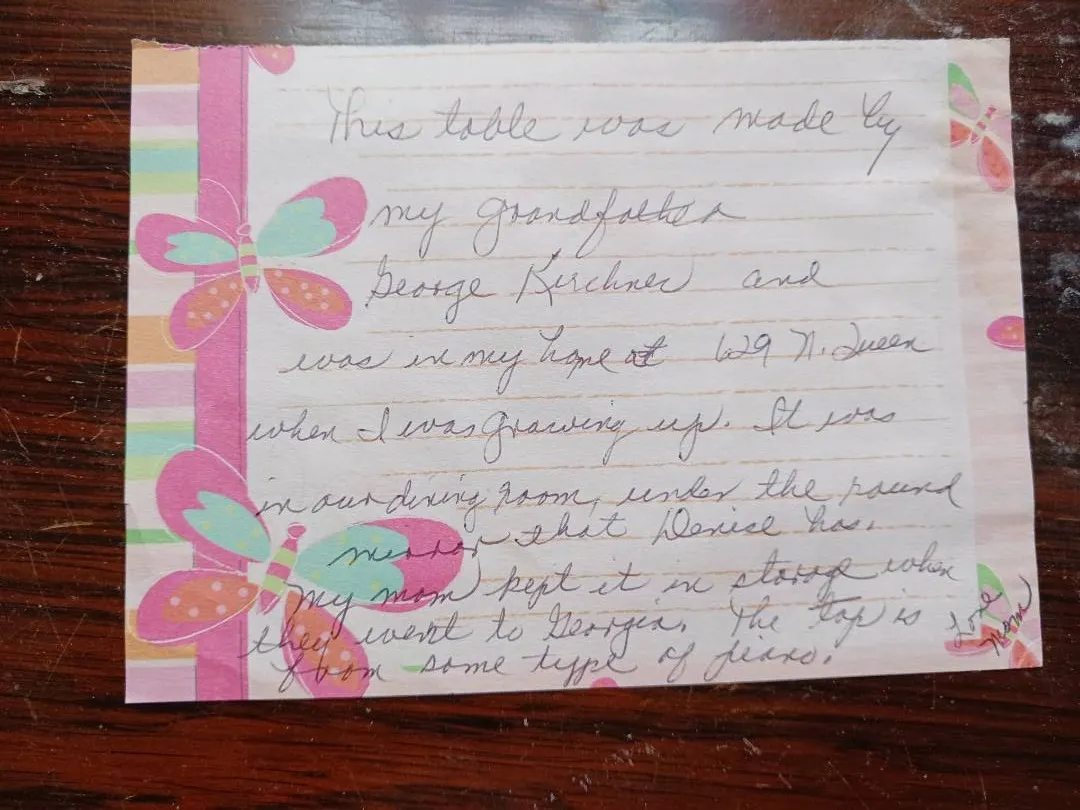 This table was made by
my grandfather
George Kirchner and
was in my home at 629 N. Queen
when I was growing up. It was
in our dining room, under the round
mirror that Denise has.
My mom kept it in storage when
they went to Georgia. The top is
from some type of piano.
Love
Mom